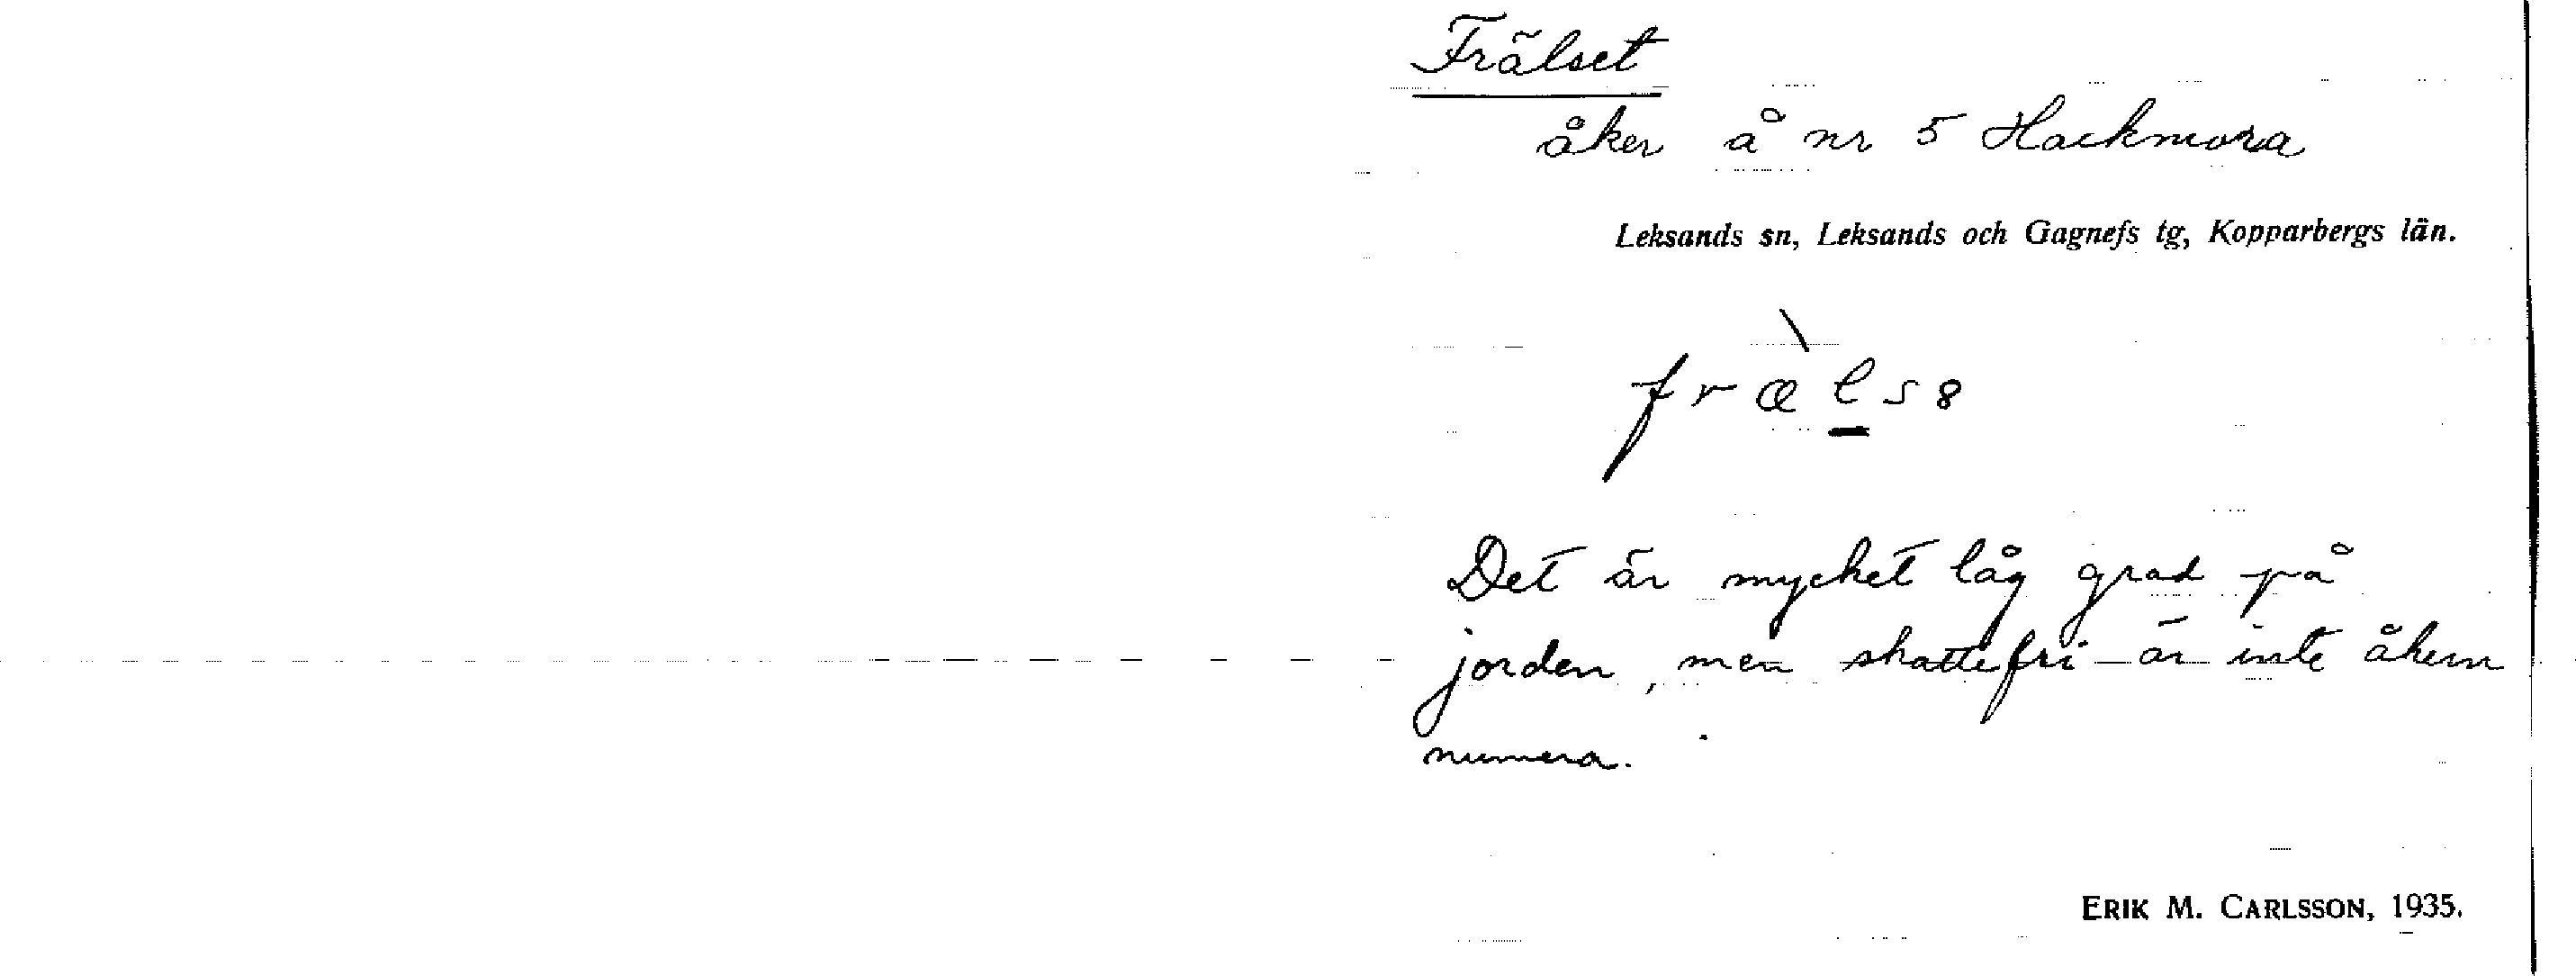 Frälset
åker å nr 5 Hackmora
Leksands sn, Leksands och Gagnefs tg, Kopparbergs län.
fræ̀l̲s8
Det är mycket låg grad på
jorden, men skattefri är inte åkern
numera.
ERIK M. CARLSSON, 1935.